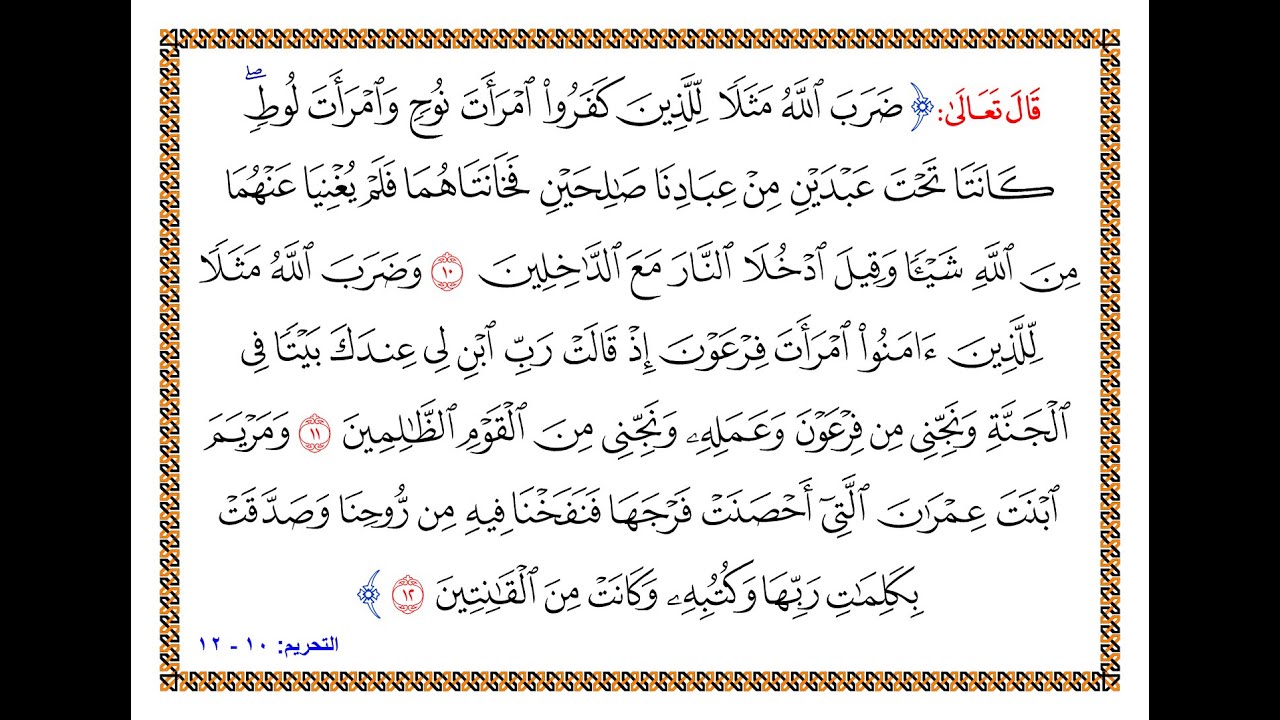 قَالَ تَعَالَىٰ: ﴿ ضَرَبَ ٱللَّهُ مَثَلٗا لِّلَّذِينَ كَفَرُواْ ٱمۡرَأَتَ نُوحٖ وَٱمۡرَأَتَ لُوطٖۖ
كَانَتَا تَحۡتَ عَبۡدَيۡنِ مِنۡ عِبَادِنَا صَٰلِحَيۡنِ فَخَانَتَاهُمَا فَلَمۡ يُغۡنِيَا عَنۡهُمَا
مِنَ ٱللَّهِ شَيۡـٔٗا وَقِيلَ ٱدۡخُلَا ٱلنَّارَ مَعَ ٱلدَّٰخِلِينَ ١٠ وَضَرَبَ ٱللَّهُ مَثَلٗا
لِّلَّذِينَ ءَامَنُواْ ٱمۡرَأَتَ فِرۡعَوۡنَ إِذۡ قَالَتۡ رَبِّ ٱبۡنِ لِي عِندَكَ بَيۡتٗا فِي
ٱلۡجَنَّةِ وَنَجِّنِي مِن فِرۡعَوۡنَ وَعَمَلِهِۦ وَنَجِّنِي مِنَ ٱلۡقَوۡمِ ٱلظَّٰلِمِينَ ١١ وَمَرۡيَمَ
ٱبۡنَتَ عِمۡرَٰنَ ٱلَّتِيٓ أَحۡصَنَتۡ فَرۡجَهَا فَنَفَخۡنَا فِيهِ مِن رُّوحِنَا وَصَدَّقَتۡ
بِكَلِمَٰتِ رَبِّهَا وَكُتُبِهِۦ وَكَانَتۡ مِنَ ٱلۡقَٰنِتِينَ ١٢ ﴾
التحريم: ١٠ - ١٢